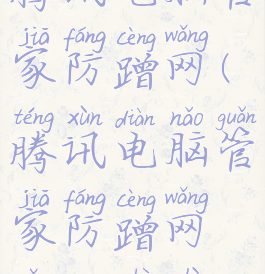 jiā fáng cèng wǎng
家防蹭网（
téng xùn diàn nǎo guǎn
腾讯电脑管
jiā fáng cèng wǎng
家防蹭网